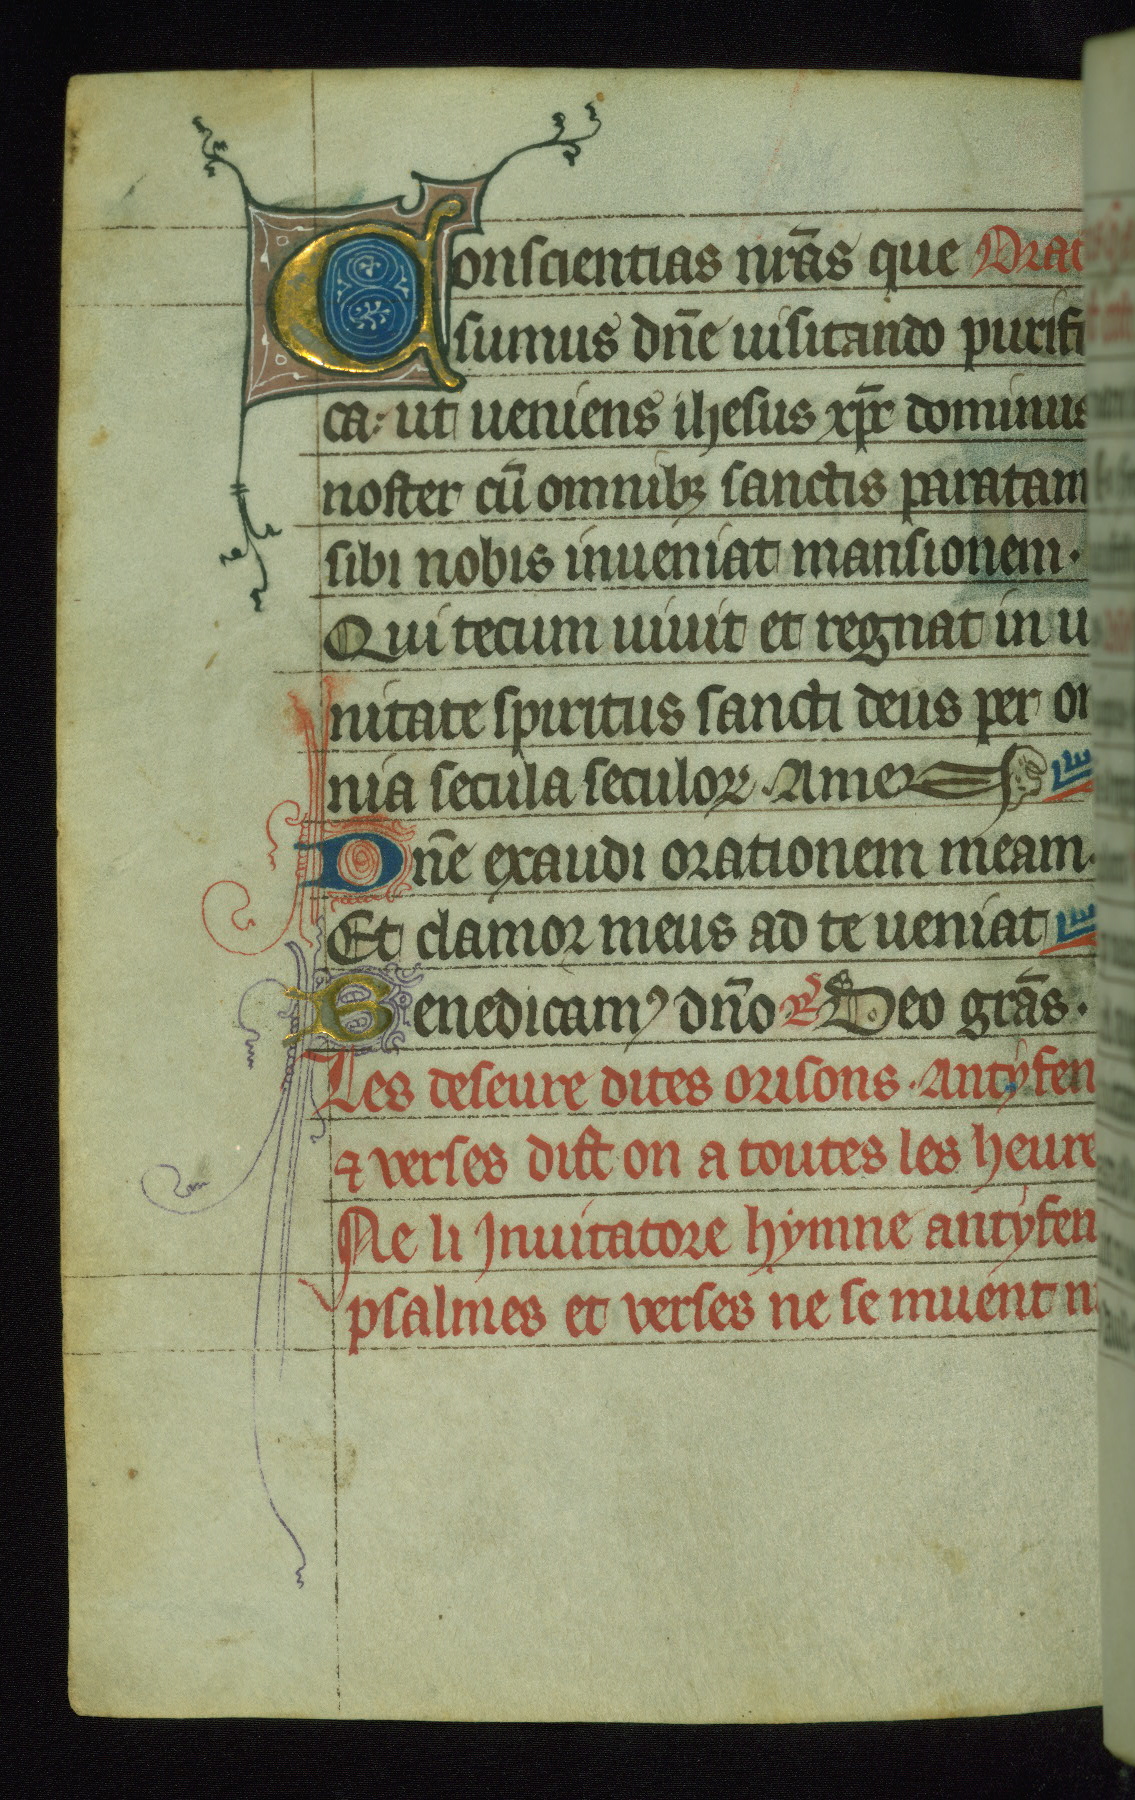 Conscientias nr̄as que Orac
sumus dn̄e uisitando purifi
ca: ut ueniens ihesus xp̄c dominus
noster cū omnibꝫ sanctis paratam
sibi nobis inueniat mansionem·
Qui tecum uiuit et regnat in u
nitate spiritus sancti deus per om
nia secula seculoꝝ. Amen
Dn̄e exaudi orationem meam.
Et clamor meus ad te ueniat
Benedicamꝰ dn̄o ℟ Deo gr̄as·
Les deseure dites orisons. Antyfen
⁊ verses dist on a toutes les heure
Ne li Inuitatore hymne antyfen
psalmes et verses ne se muent